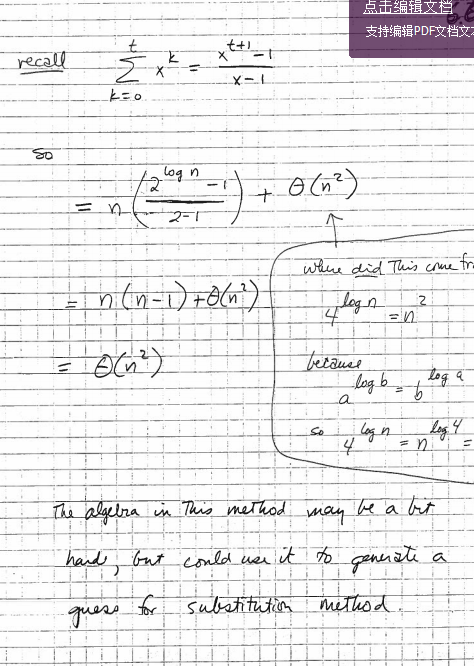 点击编辑文档
支持编辑PDF文档文
recall
t
∑ x^k = (x^(t+1) - 1)/(x - 1)
k=0
so
= n ((2^(log n) - 1)/(2-1)) + Θ(n²)
where did This come fr
= n(n-1) + Θ(n²)
4^(log n) = n²
= Θ(n²)
because
a^(log b) = b^(log a)
so 4^(log n) = n^(log 4) =
The algebra in This method may be a bit
hard, but could use it to generate a
guess for substitution method.